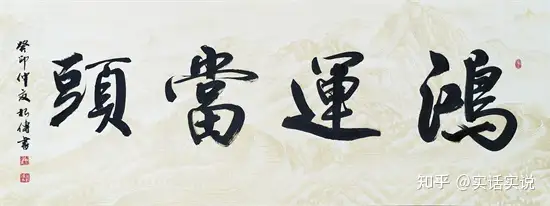 鴻運當頭
癸卯仲夏松傳書
知乎 @实话实说